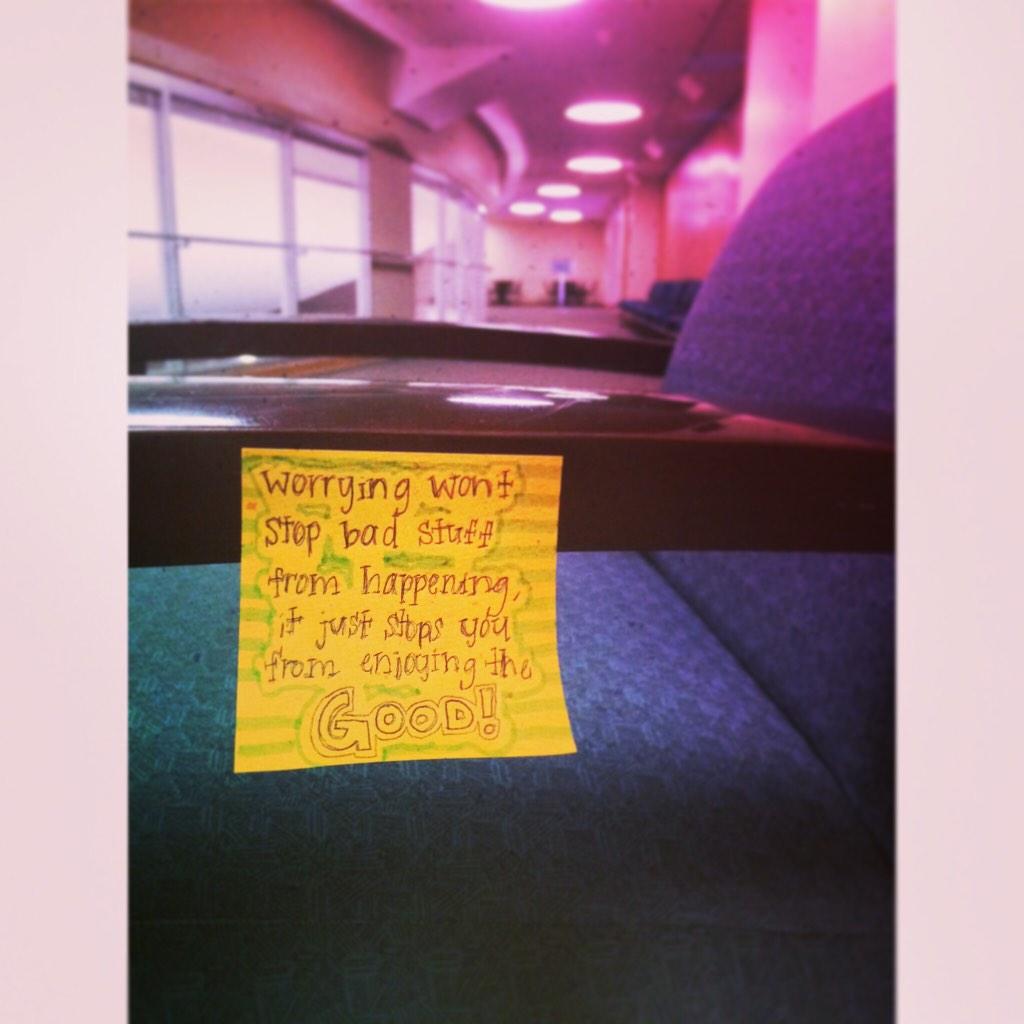 Worrying wont
stop bad stuff
from happening,
it just stops you
from enjoying the
GOOD!